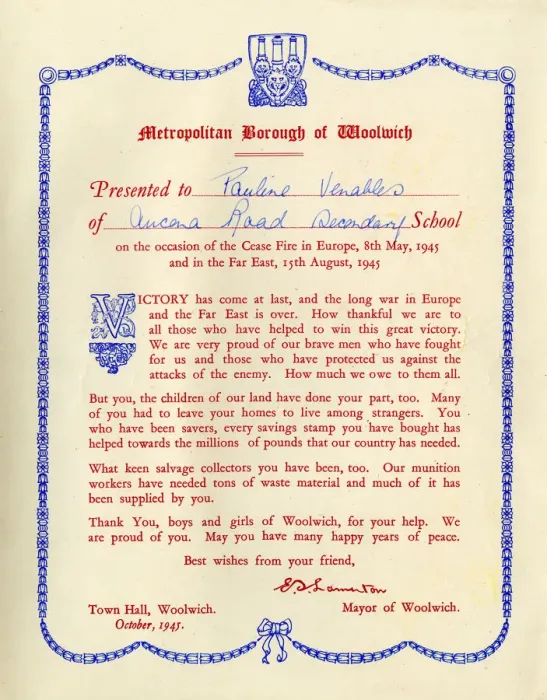 Metropolitan Borough of Woolwich
Presented to Pauline Venables
of Ancona Road Secondary School
on the occasion of the Cease Fire in Europe, 8th May, 1945
and in the Far East, 15th August, 1945
VICTORY has come at last, and the long war in Europe
and the Far East is over. How thankful we are to
all those who have helped to win this great victory.
We are very proud of our brave men who have fought
for us and those who have protected us against the
attacks of the enemy. How much we owe to them all.
But you, the children of our land have done your part, too. Many
of you had to leave your homes to live among strangers. You
who have been savers, every savings stamp you have bought has
helped towards the millions of pounds that our country has needed.
What keen salvage collectors you have been, too. Our munition
workers have needed tons of waste material and much of it has
been supplied by you.
Thank You, boys and girls of Woolwich, for your help. We
are proud of you. May you have many happy years of peace.
Best wishes from your friend,
E. S. Lamerton
Town Hall, Woolwich. Mayor of Woolwich.
October, 1945.